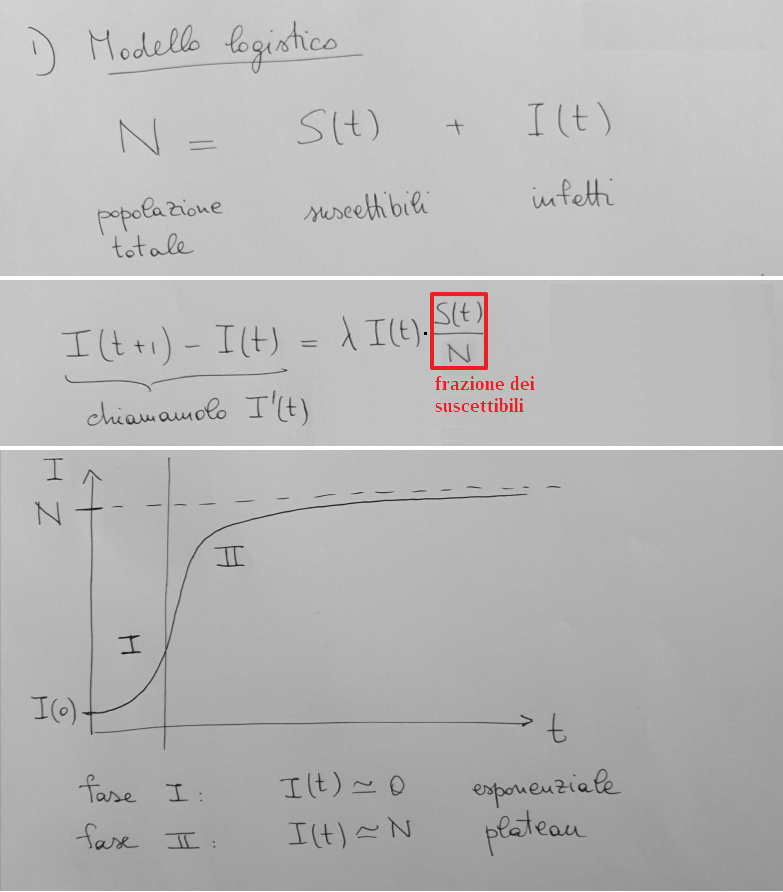 1) Modello logistico
N = S(t) + I(t)
popolazione totale suscettibili infetti
I(t+1) - I(t) = λ I(t) · S(t)/N
chiamamolo I'(t)
frazione dei
suscettibili
I
N
II
I
I(0)
t
fase I: I(t) ≃ 0 esponenziale
fase II: I(t) ≃ N plateau